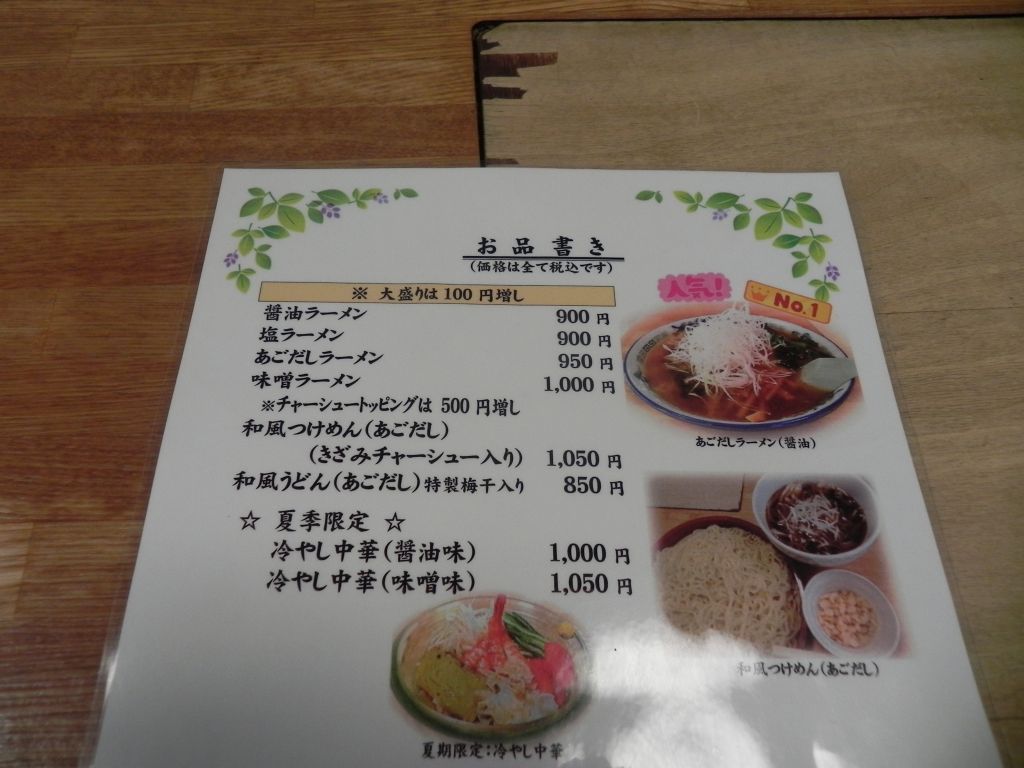 お品書き
（価格は全て税込です）
※ 大盛りは 100 円増し
醤油ラーメン 900 円
塩ラーメン 900 円
あごだしラーメン 950 円
味噌ラーメン 1,000 円
※チャーシュートッピングは 500 円増し
和風つけめん（あごだし）
（きざみチャーシュー入り） 1,050 円
和風うどん（あごだし）特製梅干入り 850 円
☆ 夏季限定 ☆
冷やし中華（醤油味） 1,000 円
冷やし中華（味噌味） 1,050 円
人気！
No.1
あごだしラーメン（醤油）
和風つけめん（あごだし）
夏期限定：冷やし中華